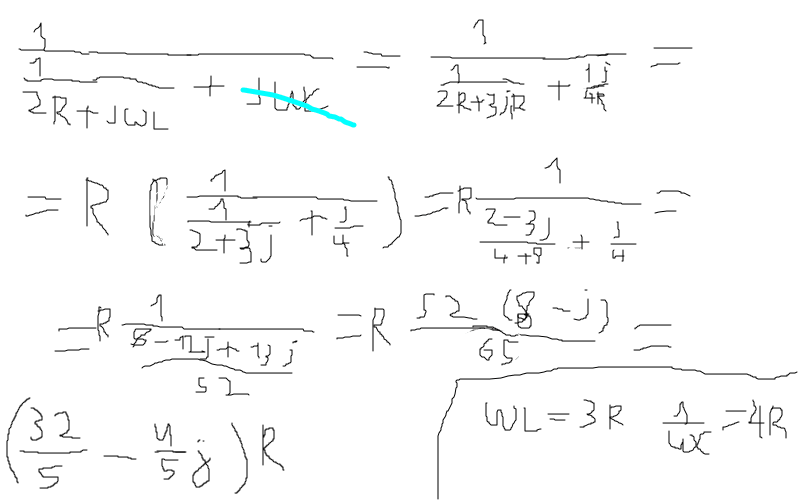 1/(1/(2R+jWL) + jWC) = 1/(1/(2R+3jR) + 1j/4R) =
= R (1/(1/(2+3j) + j/4)) = R 1/((2-3j)/(4+9) + j/4) =
= R 1/((8-12j+13j)/52) = R 52 (8-j)/65 =
(32/5 - 4/5 j) R
WL = 3R 1/WC = 4R